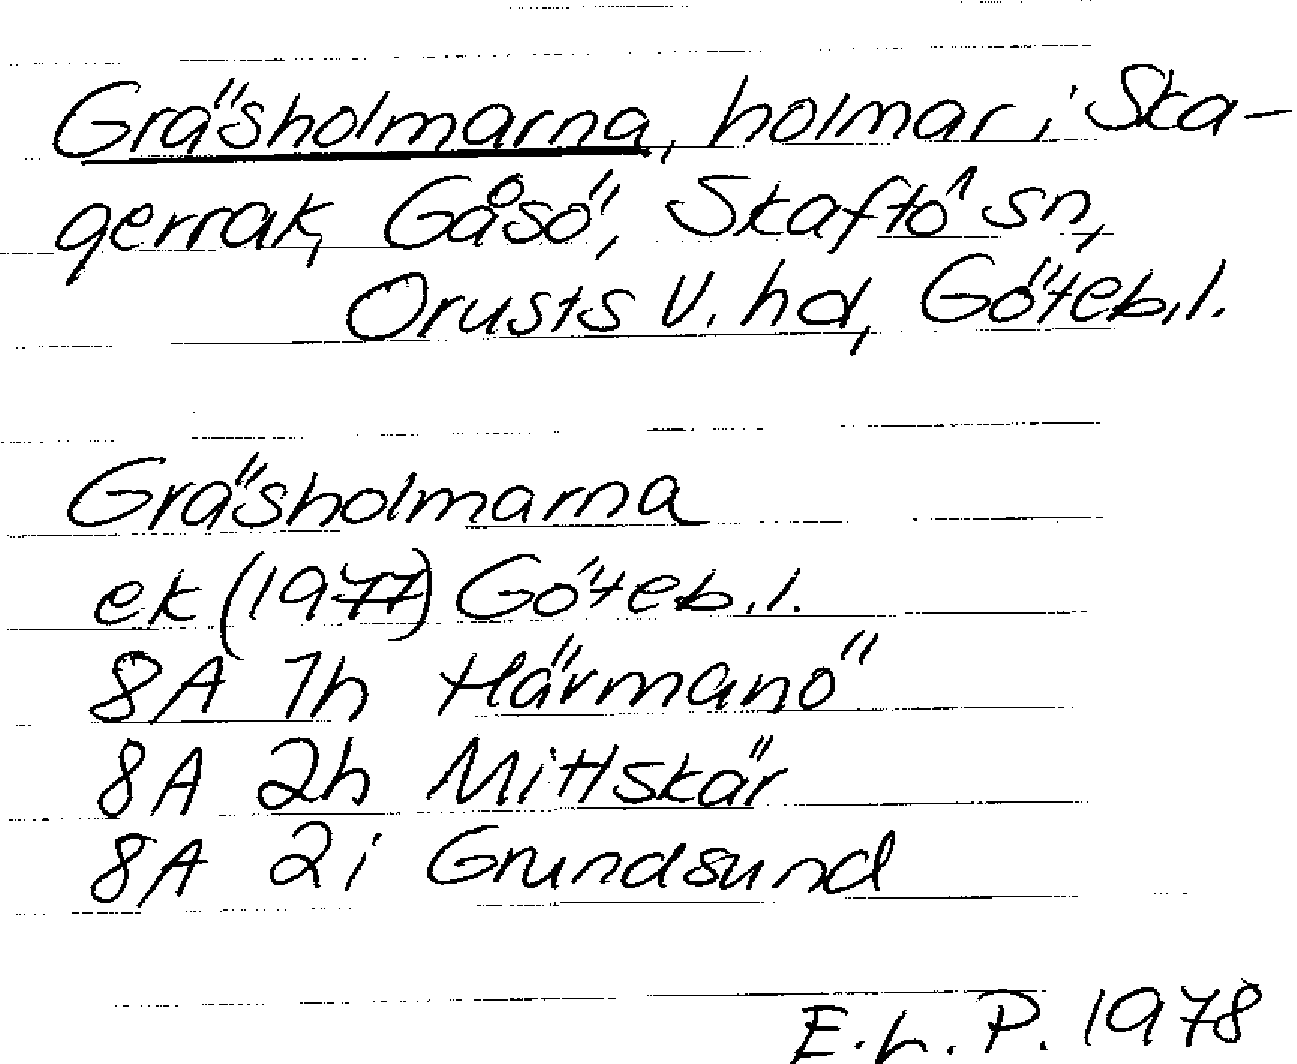 Gräsholmarna, holmar i Ska-
gerrak, Gåsö, Skaftö sn,
Orusts V. hd, Göteb.l.
Gräsholmarna
ek (1977) Göteb.l.
8A 1h Härmanö
8A 2h Mittskär
8A 2i Grundsund
E.L.P. 1978